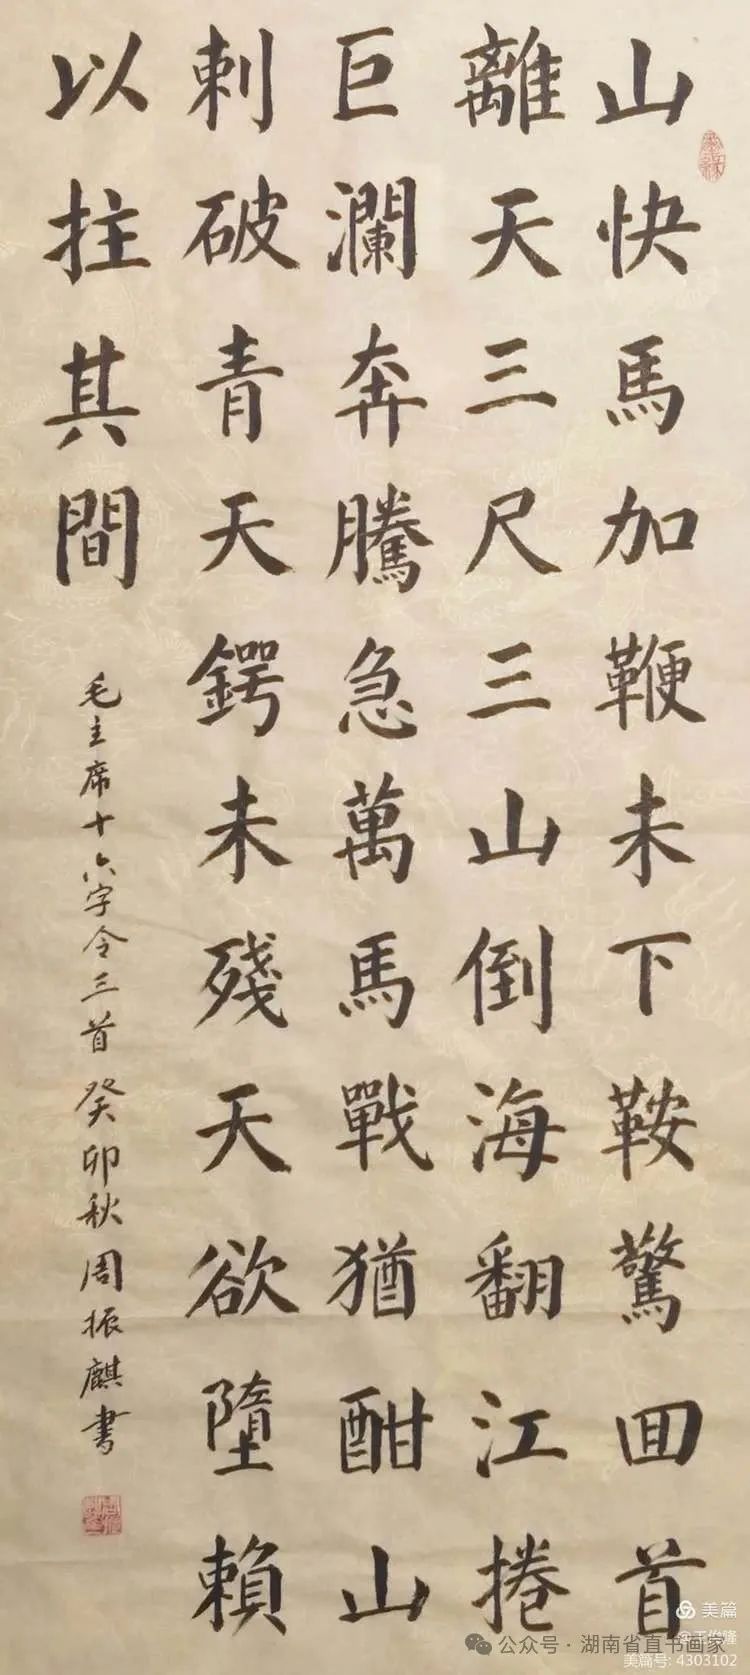 山快馬加鞭未下鞍驚回首
離天三尺三山倒海翻江捲
巨瀾奔騰急萬馬戰猶酣山
刺破青天鍔未殘天欲墮賴
以拄其間
毛主席十六字令三首癸卯秋周振麒書
美篇
@王俊隆
公众号·湖南省直书画家
美篇号:4303102